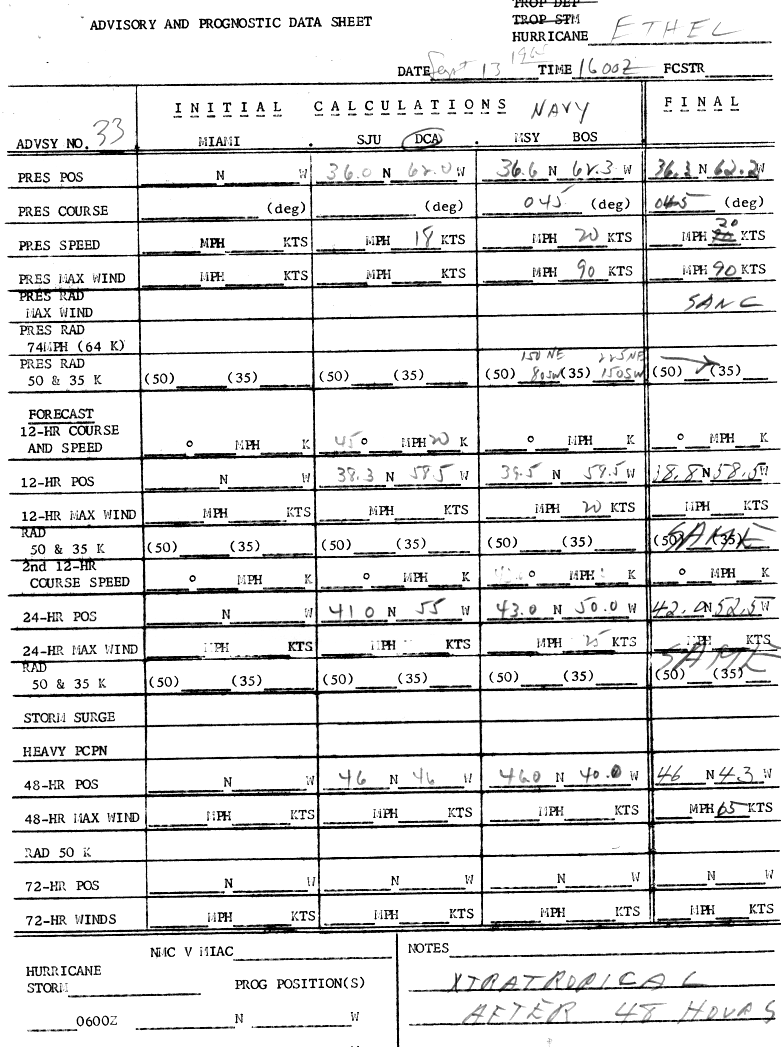 TROP DEP
ADVISORY AND PROGNOSTIC DATA SHEET TROP STM
HURRICANE ETHEL
DATE Sept 13 TIME 1600Z FCSTR
INITIAL CALCULATIONS NAVY FINAL
ADVSY NO. 33 MIAMI . SJU DCA . MSY BOS
PRES POS N W 36.0 N 62.0 W 36.6 N 62.3 W 36.3 N 62.2 W
PRES COURSE (deg) (deg) 045 (deg) 045 (deg)
20
PRES SPEED MPH KTS MPH 18 KTS MPH 20 KTS MPH KTS
PRES MAX WIND MPH KTS MPH KTS MPH 90 KTS MPH 90 KTS
PRES RAD
MAX WIND
PRES RAD
74MPH (64 K)
PRES RAD 150 NE 225 NE
50 & 35 K (50) (35) (50) (35) (50) 80SW (35) 150SW (50) (35)
FORECAST
12-HR COURSE
AND SPEED ° MPH K 45° MPH 20 K ° MPH K ° MPH K
12-HR POS N W 38.3 N 59.5 W 39.5 N 59.5 W 38.8 N 58.5 W
12-HR MAX WIND MPH KTS MPH KTS MPH 20 KTS MPH KTS
RAD
50 & 35 K (50) (35) (50) (35) (50) (35) (50) (35) SAME
2nd 12-HR
COURSE SPEED ° MPH K ° MPH K ° MPH K ° MPH K
24-HR POS N W 41 0 N 55 W 43.0 N 50.0 W 42.0 N 52.5 W
24-HR MAX WIND MPH KTS MPH KTS MPH 25 KTS MPH KTS
RAD SAME
50 & 35 K (50) (35) (50) (35) (50) (35) (50) (35)
STORM SURGE
HEAVY PCPN
48-HR POS N W 46 N 46 W 46.0 N 40.0 W 46 N 43 W
48-HR MAX WIND MPH KTS MPH KTS MPH KTS MPH 65 KTS
RAD 50 K
72-HR POS N W N W N W N W
72-HR WINDS MPH KTS MPH KTS MPH KTS MPH KTS
NMC V MIAC NOTES
HURRICANE
STORM PROG POSITION(S) XTRATROPICAL
0600Z N W AFTER 48 HOURS